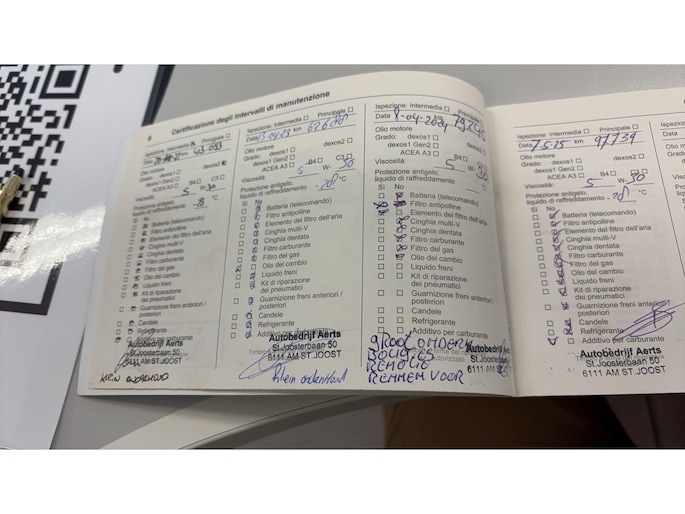 6 Certificazione degli intervalli di manutenzione
Ispezione: Intermedia Principale
Data km 43.033
Olio motore
Grado: dexos1 dexos2
dexos1 Gen2
ACEA A3 B4 C3
Viscosità: 5 W- 30
Protezione antigelo,
liquido di raffreddamento °C
Sì No
Batteria (telecomando)
Filtro antipolline
Elemento del filtro dell'aria
Cinghia multi-V
Cinghia dentata
Filtro carburante
Filtro del gas
Olio del cambio
Liquido freni
Kit di riparazione
dei pneumatici
Guarnizione freni anteriori /
posteriori
Candele
Refrigerante
Additivo per carburante
Autobedrijf Aerts
St.Joosterbaan 50
6111 AM ST.JOOST
KLEIN ONDERHOUD
Ispezione: Intermedia Principale
Data 13-04-23 km
Olio motore
Grado: dexos1 dexos2
dexos1 Gen2
ACEA A3 B4 C3
Viscosità: 5 W- 30
Protezione antigelo,
liquido di raffreddamento -20 °C
Sì No
Batteria (telecomando)
Filtro antipolline
Elemento del filtro dell'aria
Cinghia multi-V
Cinghia dentata
Filtro carburante
Filtro del gas
Olio del cambio
Liquido freni
Kit di riparazione
dei pneumatici
Guarnizione freni anteriori /
posteriori
Candele
Refrigerante
Additivo per carburante
Autobedrijf Aerts
St.Joosterbaan 50
6111 AM ST.JOOST
Klein onderhoud
Ispezione: Intermedia Principale
Data 8-04-2024
Olio motore
Grado: dexos1 dexos2
dexos1 Gen2
ACEA A3 B4 C3
Viscosità: 5 W- 30
Protezione antigelo,
liquido di raffreddamento -20 °C
Sì No
Batteria (telecomando)
Filtro antipolline
Elemento del filtro dell'aria
Cinghia multi-V
Cinghia dentata
Filtro carburante
Filtro del gas
Olio del cambio
Liquido freni
Kit di riparazione
dei pneumatici
Guarnizione freni anteriori /
posteriori
Candele
Refrigerante
Additivo per carburante
GROOT ONDERH
BOUGIES
REMOLIE
REMMEN VOOR
Autobedrijf
St.Joosterbaan
6111 AM ST.
Ispezione: Intermedia Principale
Data 7-5-25 km 97739
Olio motore
Grado: dexos1 dexos2
dexos1 Gen2
ACEA A3 B4 C3
Viscosità: 5 W- 30
Protezione antigelo,
liquido di raffreddamento -20 °C
Sì No
Batteria (telecomando)
Filtro antipolline
Elemento del filtro dell'aria
Cinghia multi-V
Cinghia dentata
Filtro carburante
Filtro del gas
Olio del cambio
Liquido freni
Kit di riparazione
dei pneumatici
Guarnizione freni anteriori /
posteriori
Candele
Refrigerante
Additivo per carburante
Autobedrijf Aerts
St.Joosterbaan 50
6111 AM ST.JOOST